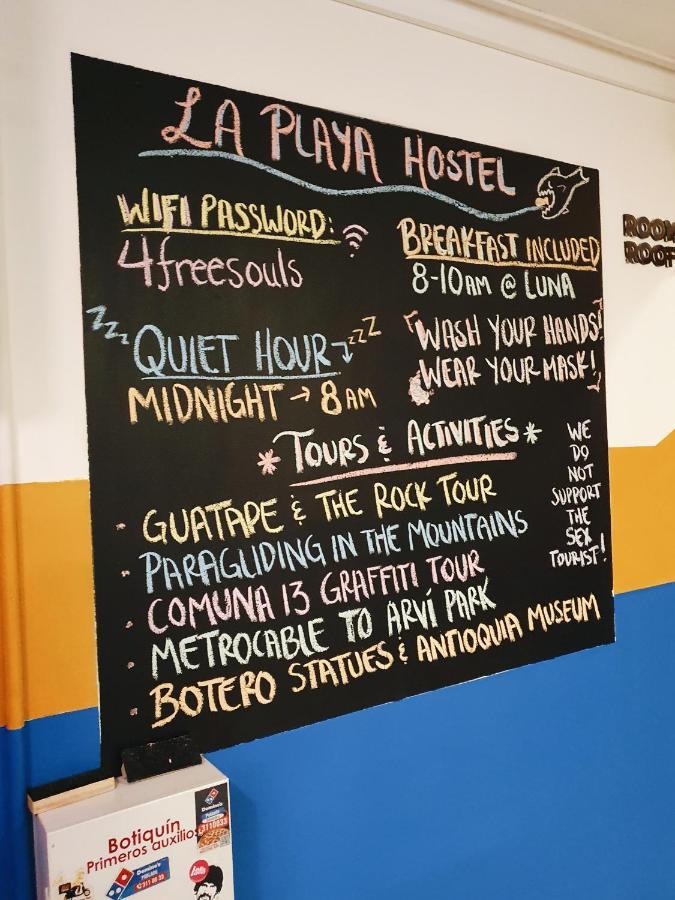 LA PLAYA HOSTEL
WIFI PASSWORD:
4freesouls
BREAKFAST INCLUDED
8-10AM @ LUNA
zzz QUIET HOUR zzz
MIDNIGHT → 8AM
WASH YOUR HANDS!
WEAR YOUR MASK!
* TOURS & ACTIVITIES *
- GUATAPE & THE ROCK TOUR
- PARAGLIDING IN THE MOUNTAINS
- COMUNA 13 GRAFFITI TOUR
- METROCABLE TO ARVÍ PARK
- BOTERO STATUES & ANTIOQUIA MUSEUM
WE
DO
NOT
SUPPORT
THE
SEX
TOURIST!
Botiquín
Primeros auxilios
Domino's